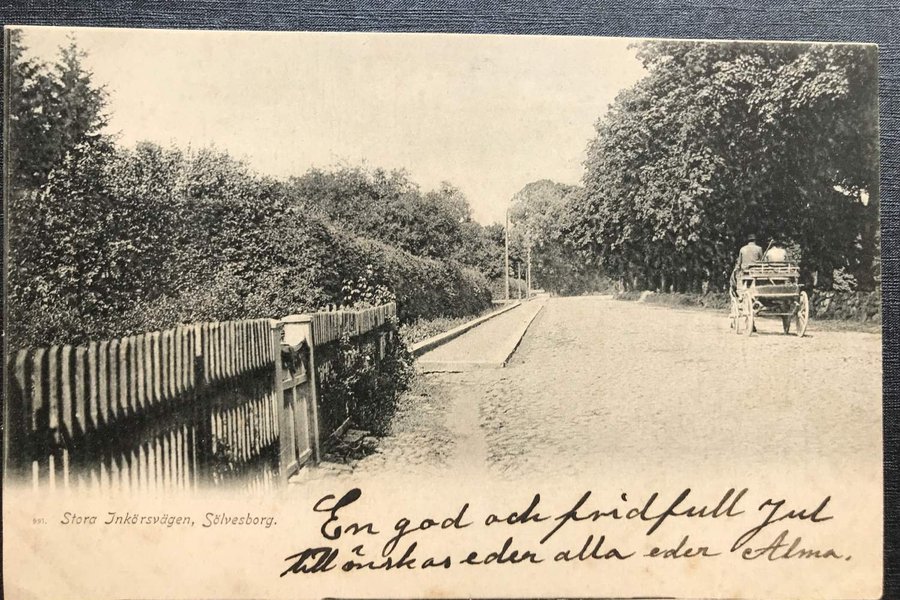 991. Stora Inkörsvägen, Sölvesborg.
En god och fridfull Jul
till önskas eder alla eder Alma.